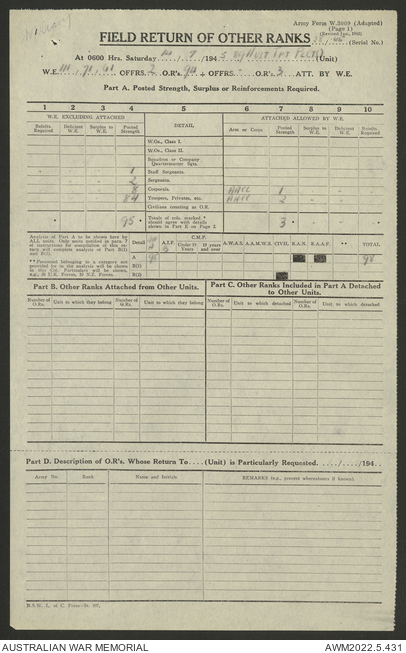 Army Form W.3009 (Adapted)
(Page 1)
FIELD RETURN OF OTHER RANKS
(Serial No.)
At 0600 Hrs. Saturday 14 / 7 /1945 (Unit)
W.E. OFFRS. 2 O.R's. 94 + OFFRS. - O.R's. 3 ATT. BY W.E.
Part A. Posted Strength, Surplus or Reinforcements Required.
1 2 3 4 5 6 7 8 9 10
W.E. EXCLUDING ATTACHED DETAIL ATTACHED ALLOWED BY W.E.
Reinfts Required Deficient W.E. Surplus to W.E. Posted Strength Arm or Corps Posted Strength Surplus to W.E. Deficient W.E. Reinfts Required
W.Os., Class I.
W.Os., Class II.
Squadron or Company Quartermaster Sgts.
1 Staff Sergeants.
2 Sergeants.
8 Corporals. AACC 1
84 Troopers, Privates, etc. AACC 2
Civilians counting as O.R.
95 Totals of cols. marked * should agree with details shown in Part E on Page 2. 3
Analysis of Part A to be shown here by
ALL units.
Detail A.I.F. C.M.F. Under 19 Years 19 years and over A.W.A.S. A.A.M.W.S. CIVIL R.A.N. R.A.A.F. ** TOTAL
** Personnel belonging to a category not
provided for in the analysis will be shown
in this Col. Particulars will be shown,
e.g., 20 U.K. Forces, 10 N.Z. Forces.
A 98
B(1)
B(2)
Part B. Other Ranks Attached from Other Units. Part C. Other Ranks Included in Part A Detached
to Other Units.
Number of O.Rs. Unit to which they belong Number of O.Rs. Unit to which they belong Number of O.Rs. Unit to which detached Number of O.Rs. Unit to which detached
Part D. Description of O.R's. Whose Return To....(Unit) is Particularly Requested...../...../194..
Army No. Rank Name and Initials REMARKS (e.g., present whereabouts if known).
AUSTRALIAN WAR MEMORIAL AWM2022.5.431